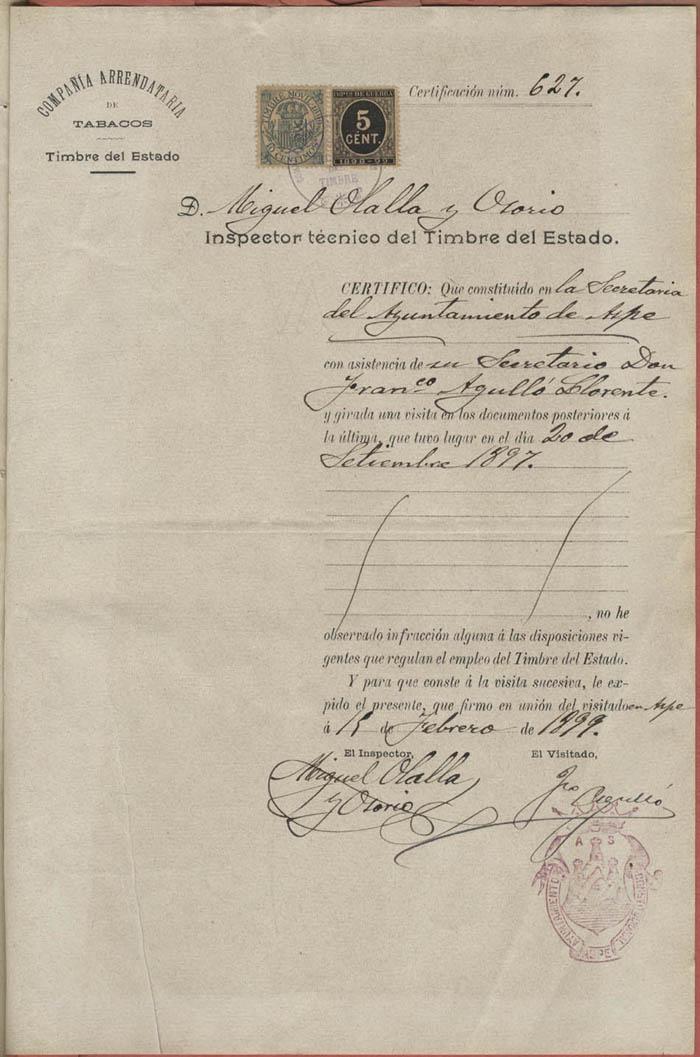 COMPAÑÍA ARRENDATARIA
DE
TABACOS
Timbre del Estado
TIMBRE MOVIL
10 CENTIMOS
IMPTO DE GUERRA
5
CENT.
1898-99
TIMBRE
Certificación núm. 627.
D. Miguel Olalla y Osorio
Inspector técnico del Timbre del Estado.
CERTIFICO: Que constituido en la Secretaria
del Ayuntamiento de Aspe
con asistencia de su Secretario Don
Franco Agulló Llorente.
y girada una visita en los documentos posteriores á
la última, que tuvo lugar en el día 20 de
Setiembre 1897.
, no he
observado infracción alguna á las disposiciones vi-
gentes que regulan el empleo del Timbre del Estado.
Y para que conste á la visita sucesiva, le ex-
pido el presente, que firmo en unión del visitado en Aspe
á 15 de Febrero de 1899.
El Inspector,
El Visitado,
Miguel Olalla
y Osorio
Fco Agulló
A S
AYUNTAMIENTO
ASPE